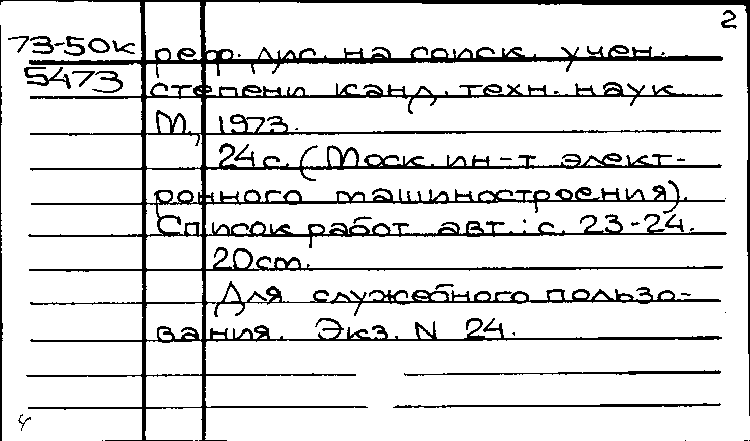 2
73-50к реф. дис. на соиск. учен.
5473 степени канд. техн. наук
М., 1973.
24с. (Моск. ин-т элект-
ронного машиностроения).
Список работ авт.: с. 23-24.
20см.
Для служебного пользо-
вания. Экз. N 24.